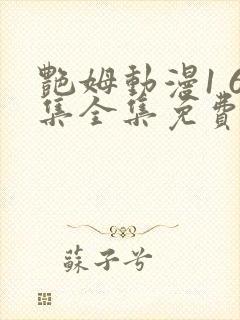 艷姆動漫1 6
集全集免費
蘇子兮